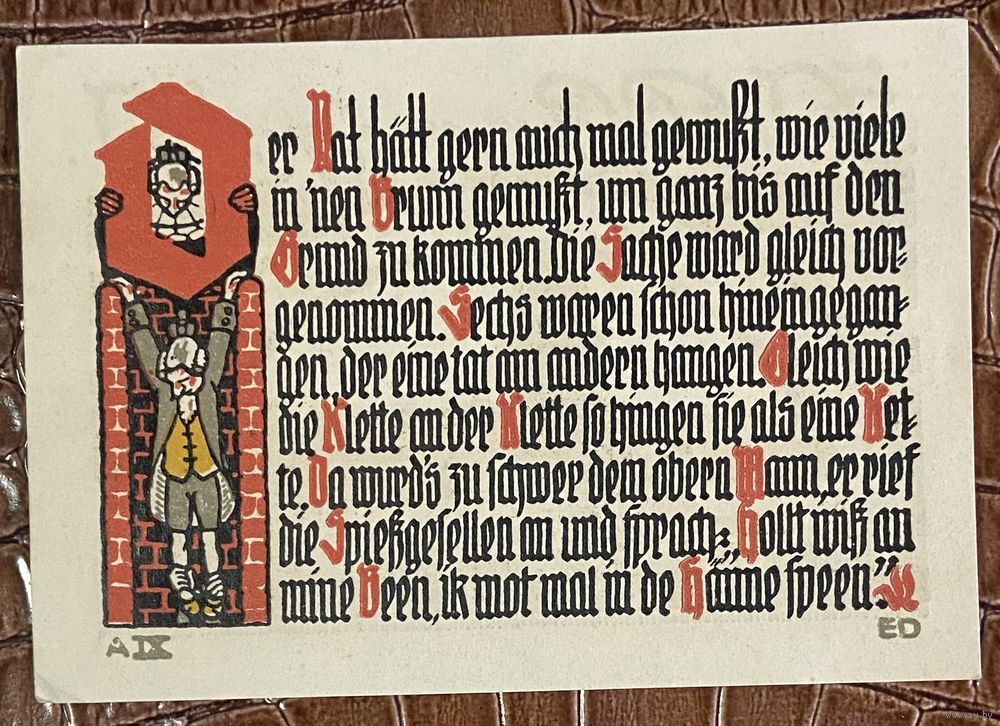 Der Rat hätt gern auch mal gewußt, wie viele
in 'nen Brunn gemußt, um ganz bis auf den
Grund zu kommen. Die Sache ward gleich vor=
genommen. Sechs waren schon hineingegan=
gen, der eine tat am andern hangen. Gleich wie
die Klette an der Klette so hingen sie als eine Ket=
te. Da wurd's zu schwer dem obern Mann, er rief
die Spießgesellen an und sprach: „Hollt wiß an
mine Been, ik mot mal in de Hänne speen."
A IX
ED
www.ay.by